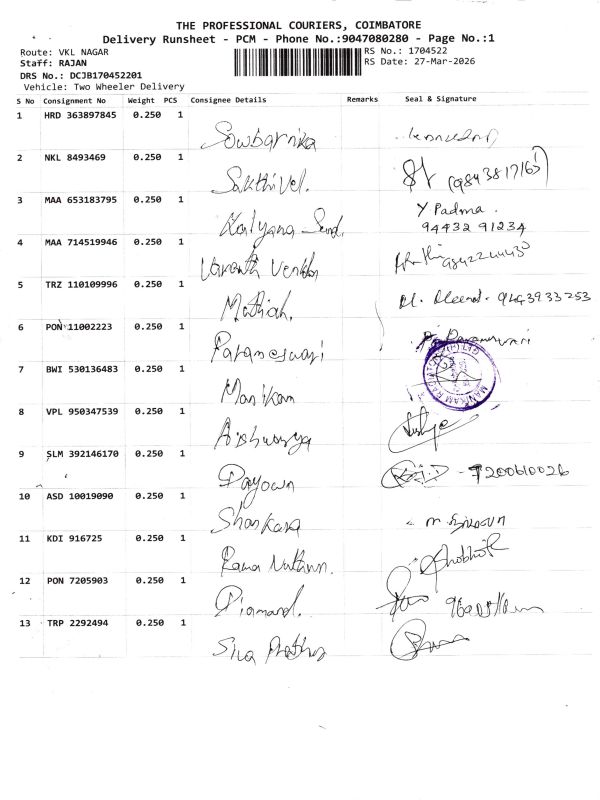 THE PROFESSIONAL COURIERS, COIMBATORE
Delivery Runsheet - PCM - Phone No.:9047080280 - Page No.:1
Route: VKL NAGAR
RS No.: 1704522
Staff: RAJAN
RS Date: 27-Mar-2026
DRS No.: DCJB170452201
Vehicle: Two Wheeler Delivery
S No Consignment No Weight PCS Consignee Details Remarks Seal & Signature
1 HRD 363897845 0.250 1
Sowbarnika
2 NKL 8493469 0.250 1
Sakthivel.
3 MAA 653183795 0.250 1 Y Padma.
Kalyana 94432 91234
4 MAA 714519946 0.250 1
5 TRZ 110109996 0.250 1
Mathiah. 9443933253
6 PON 11002223 0.250 1
Parameswari
7 BWI 530136483 0.250 1
Manikam
8 VPL 950347539 0.250 1
Aishwarya
9 SLM 392146170 0.250 1
7200610026
10 ASD 10019090 0.250 1
Shankara
11 KDI 916725 0.250 1
Rama
12 PON 7205903 0.250 1
Diamand.
13 TRP 2292494 0.250 1
Siva